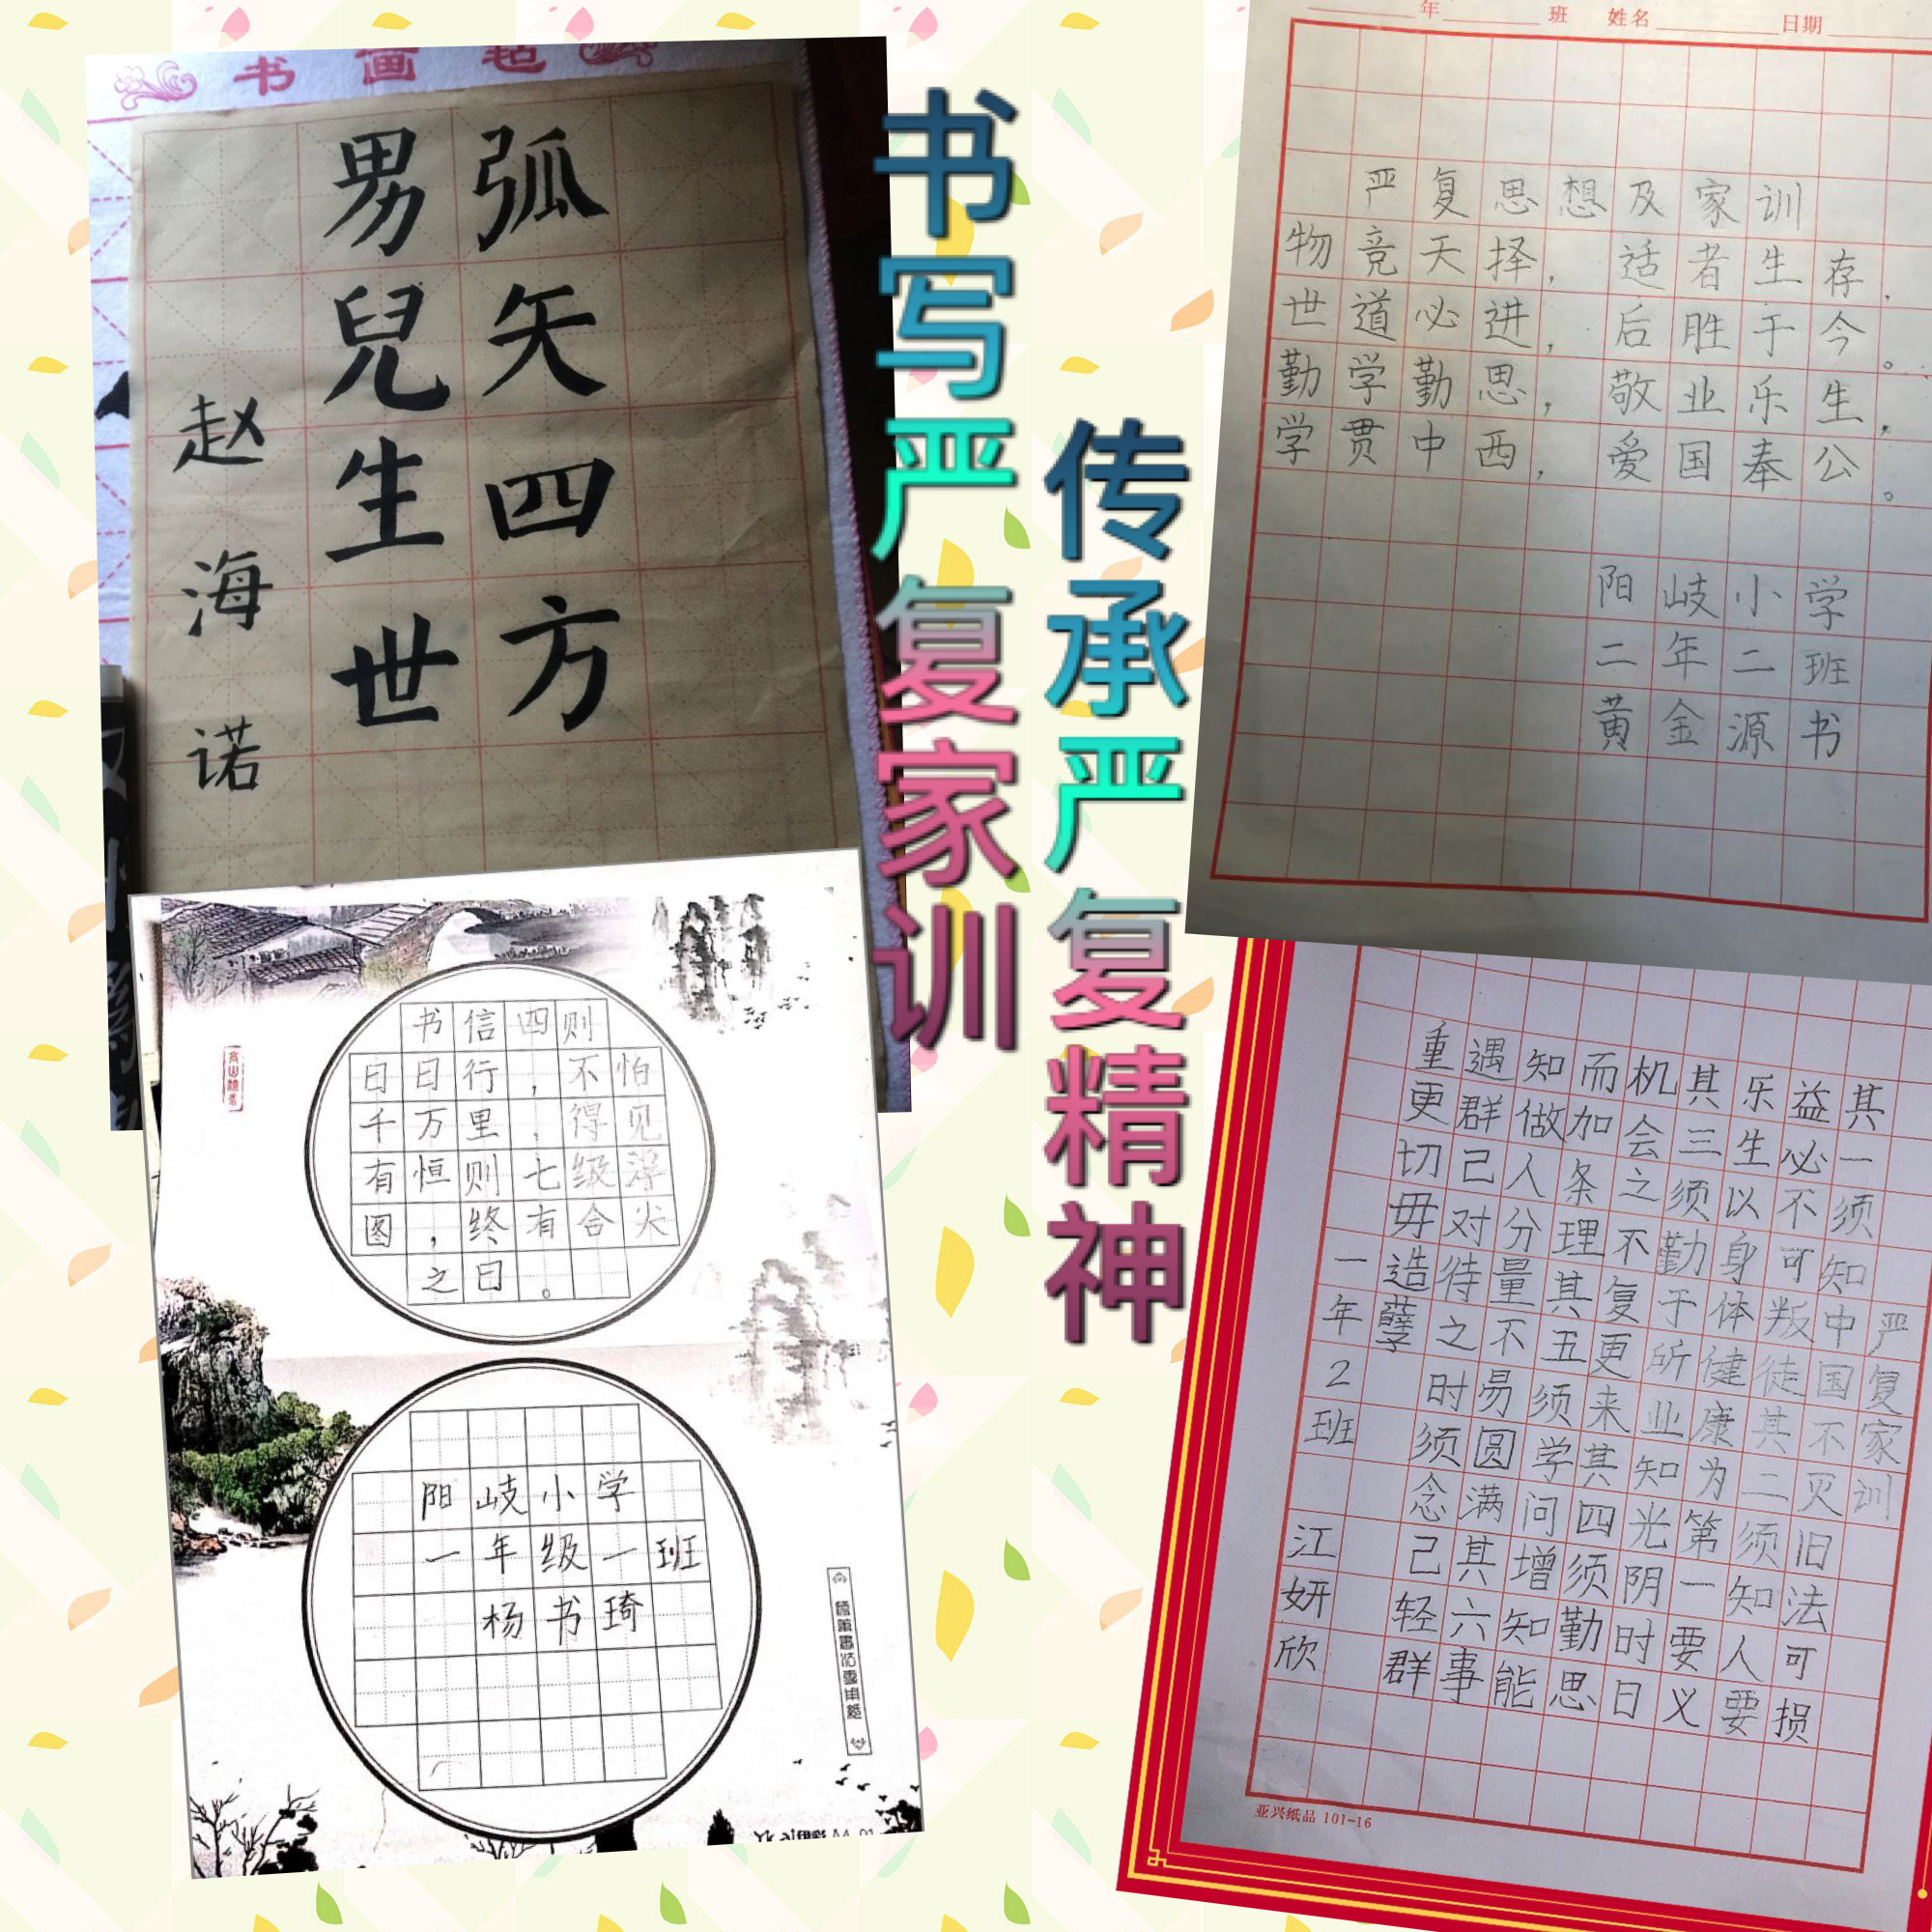 书画毡
弧矢四方
男兒生世
赵海诺
书写严复家训
传承严复精神
年 班 姓名 日期
严复思想及家训
物竞天择，适者生存．
世道必进，后胜于今。
勤学勤思，敬业乐生，
学贯中西，爱国奉公。
阳岐小学
二年二班
黄金源书
书信四则
日日行，不怕
千万里，得见
有恒则七级浮
图，终有合尖
之日。
阳岐小学
一年级一班
杨书琦
严复家训
其一须知中国不灭旧法可损
益必不可叛徒其二须知人要
乐生以身体健康为第一要义
其三须勤于所业知光阴时日
机会之不复更来其四须勤思
而加条理其五须学问增知能
知做人分量不易圆满其六事
遇群己对待之时须念己轻群
重更切毋造孽
一年2班 江妍欣
亚兴纸品 101-16